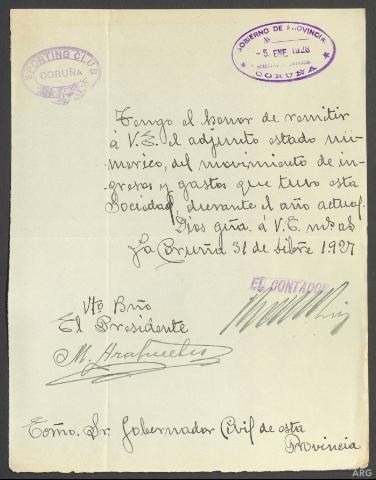 SPORTING CLUB
CORUÑA
GOBIERNO DE PROVINCIA
-5 ENE 1928
CORUÑA
Tengo el honor de remitir
á V.E. el adjunto estado nú-
merico, del movimiento de in-
gresos y gastos que tuvo esta
Sociedad, durante el año actual.
Dios gũe. á V.E. ms. as.
La Coruña 31 de Dibre 1927
EL CONTADOR
Vto Bño
El Presidente
Exmo. Sr. Gobernador Civil de esta
Provincia
ARG